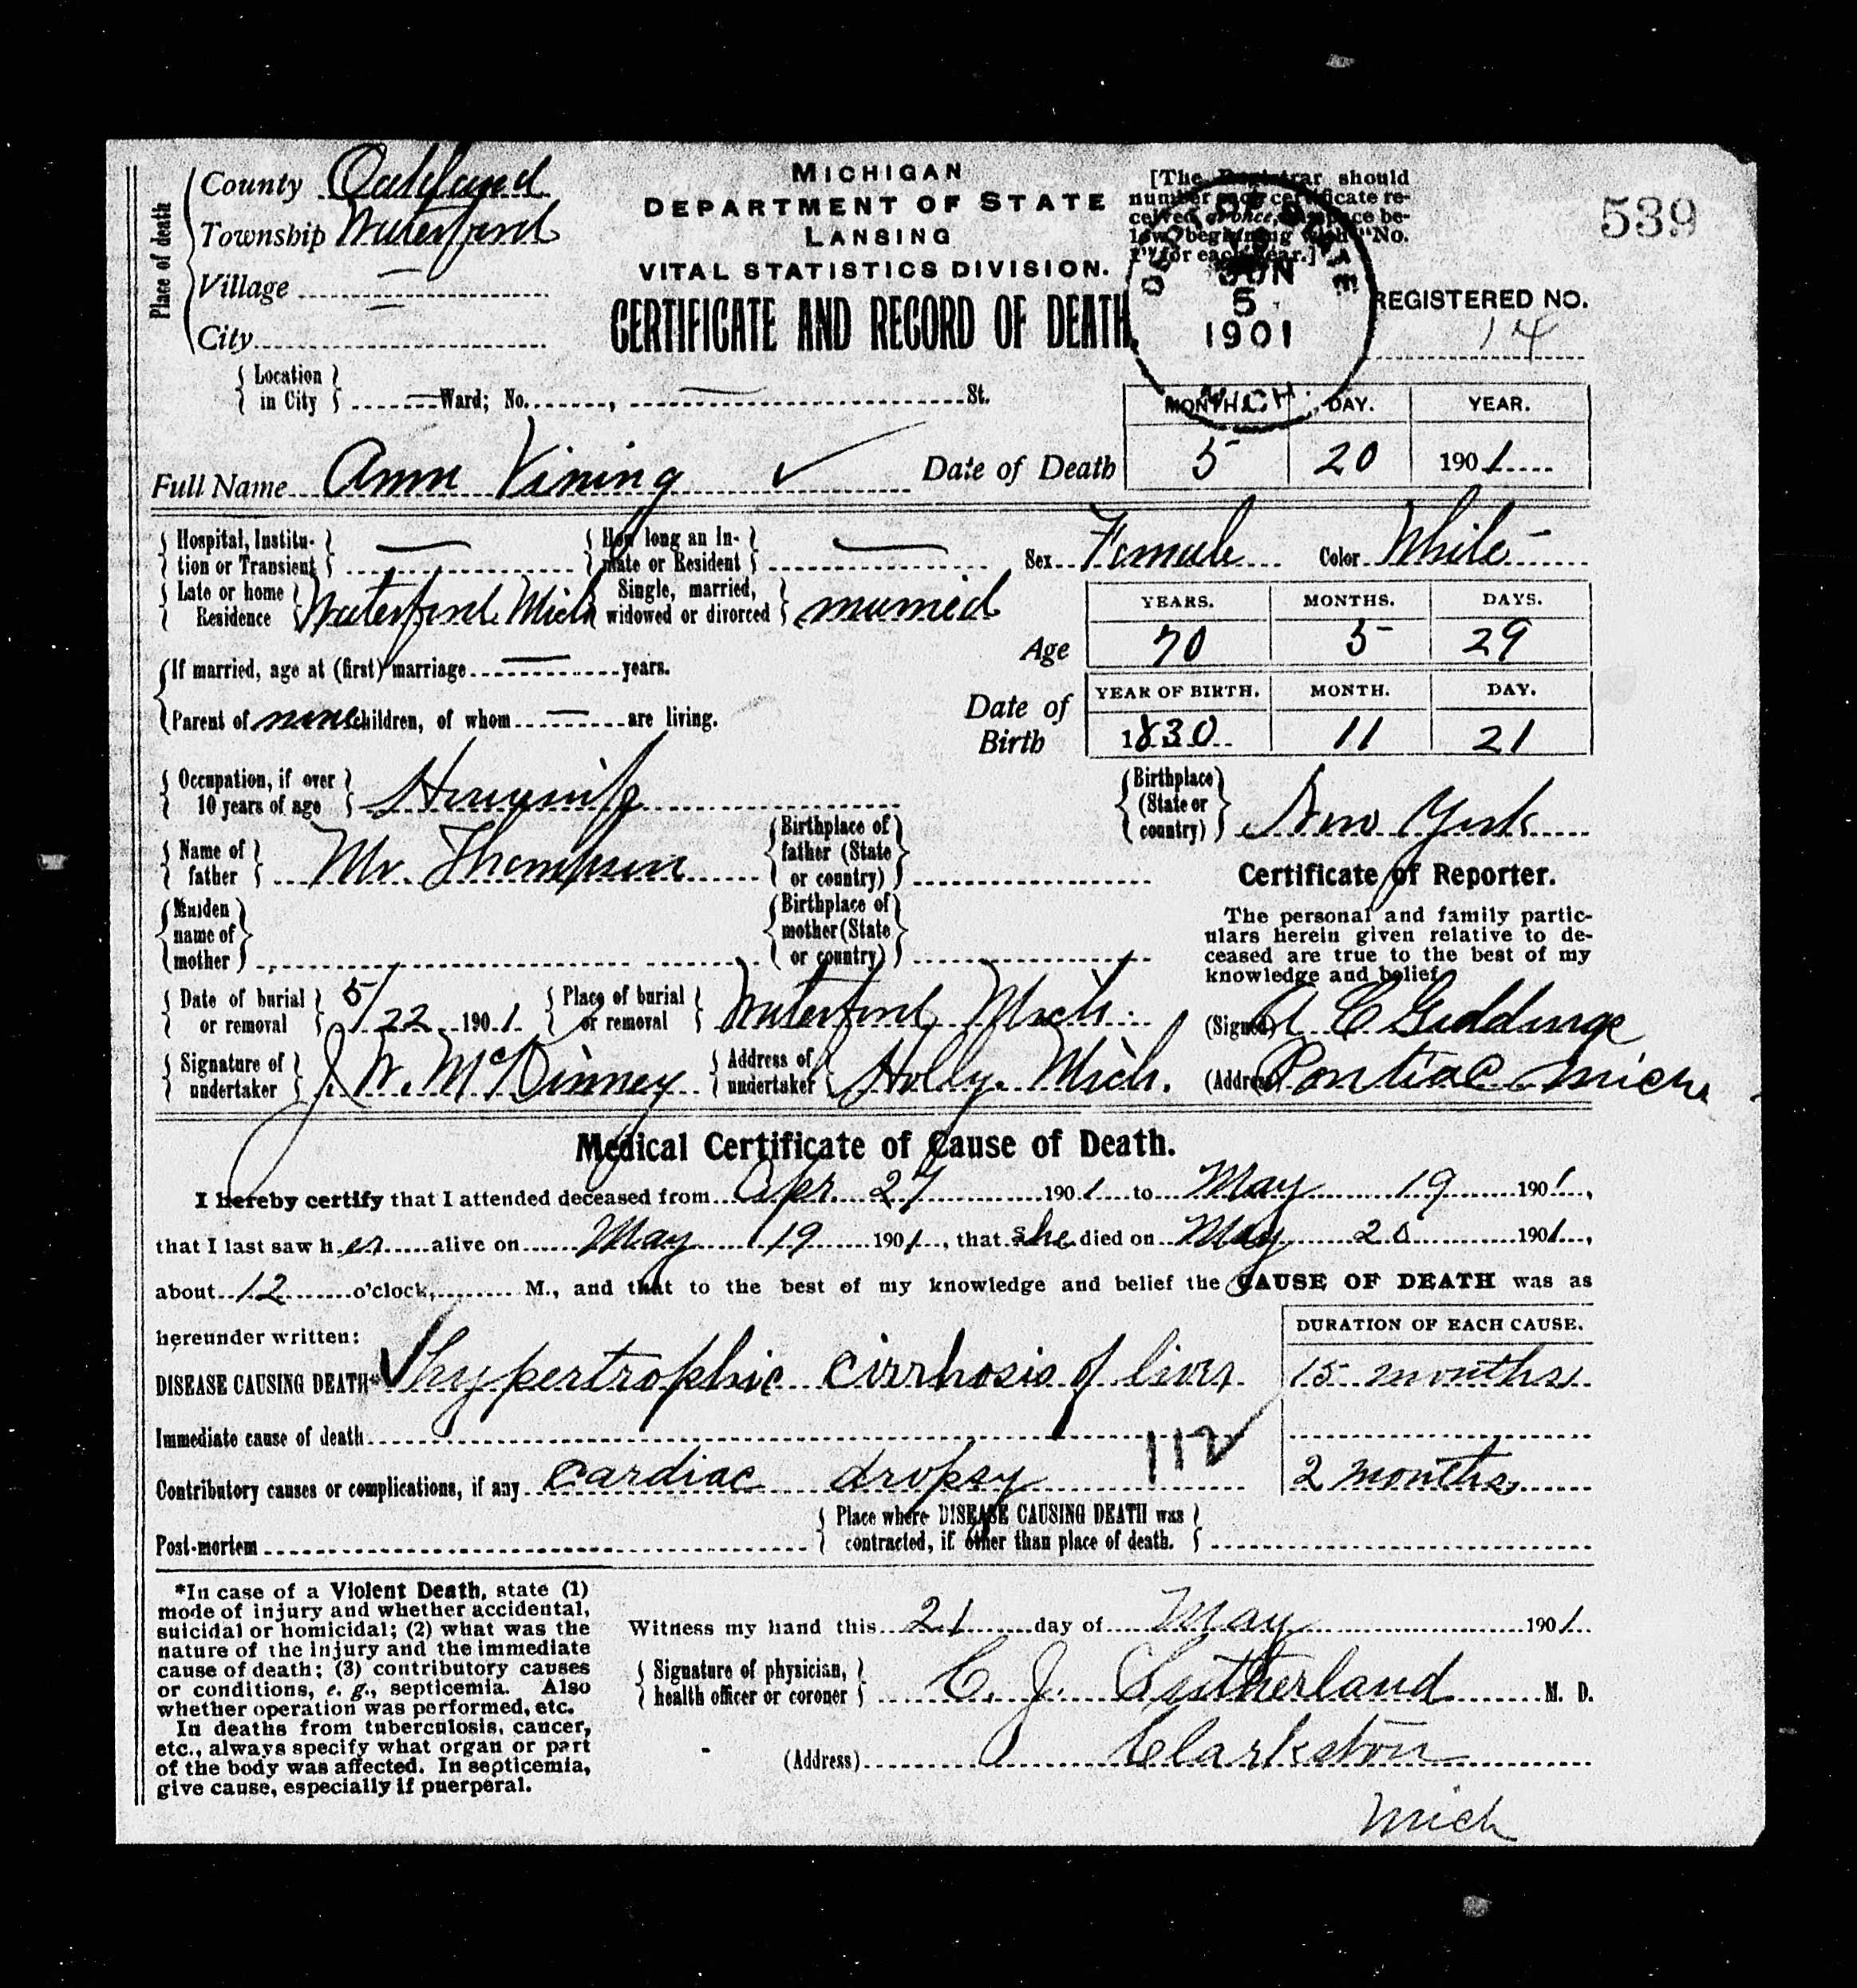 Place of death
County Oakland
Township Waterford
Village
City
Location in City Ward; No. , St.
MICHIGAN
DEPARTMENT OF STATE
LANSING
VITAL STATISTICS DIVISION.
CERTIFICATE AND RECORD OF DEATH.
[The Registrar should
number each certificate re-
ceived at once, in space be-
low, beginning with "No.
1" for each year.]
JUN
5
1901
MICH.
539
REGISTERED NO.
14
Full Name Ann Vining
Date of Death
MONTH. DAY. YEAR.
5 20 1901
Hospital, Institu-
tion or Transient
How long an In-
mate or Resident
Sex Female Color White
Late or home
Residence Waterford Mich
Single, married,
widowed or divorced married
Age
YEARS. MONTHS. DAYS.
70 5 29
If married, age at (first) marriage years.
Parent of none children, of whom are living.
Date of
Birth
YEAR OF BIRTH. MONTH. DAY.
1830 11 21
Occupation, if over
10 years of age Housewife
Birthplace
(State or
country) New York
Name of
father Mr. Thompson
Birthplace of
father (State
or country)
Maiden
name of
mother
Birthplace of
mother (State
or country)
Certificate of Reporter.
The personal and family partic-
ulars herein given relative to de-
ceased are true to the best of my
knowledge and belief.
(Signed) A C Giddings
(Address) Pontiac Mich
Date of burial
or removal 5/22 1901
Place of burial
or removal Waterford, Mich.
Signature of
undertaker J. W. McKinney
Address of
undertaker Holly, Mich.
Medical Certificate of Cause of Death.
I hereby certify that I attended deceased from Apr. 27 1901 to May 19 1901,
that I last saw her alive on May 19 1901, that she died on May 20 1901,
about 12 o'clock, M., and that to the best of my knowledge and belief the CAUSE OF DEATH was as
hereunder written:
DURATION OF EACH CAUSE.
DISEASE CAUSING DEATH* hypertrophic cirrhosis of liver 15 months
Immediate cause of death
112
Contributory causes or complications, if any cardiac dropsy 2 months
Post-mortem
Place where DISEASE CAUSING DEATH was
contracted, if other than place of death.
*In case of a Violent Death, state (1)
mode of injury and whether accidental,
suicidal or homicidal; (2) what was the
nature of the injury and the immediate
cause of death; (3) contributory causes
or conditions, e. g., septicemia. Also
whether operation was performed, etc.
In deaths from tuberculosis, cancer,
etc., always specify what organ or part
of the body was affected. In septicemia,
give cause, especially if puerperal.
Witness my hand this 21 day of May 1901
Signature of physician,
health officer or coroner C. J. Sutherland M. D.
(Address) Clarkston
Mich